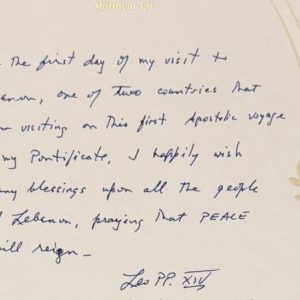 Matthew 5:9
the first day of my visit to
anon, one of two countries that
m visiting on this first Apostolic voyage
my Pontificate, I happily wish
ny blessings upon all the people
Lebanon, praying that PEACE
ill reign –
Leo PP. XIV